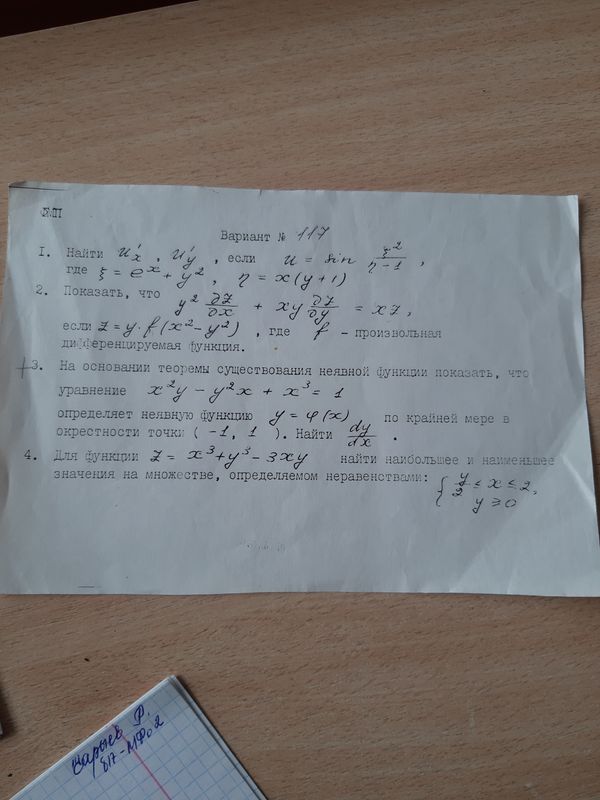 ФМП
Вариант № 117
1. Найти u'x , u'y , если u = sin ξ²/(η-1) ,
где ξ = eˣ + y² , η = x(y+1)
2. Показать, что
y² ∂z/∂x + xy ∂z/∂y = xz,
если z = y·f(x²-y²) , где f - произвольная
дифференцируемая функция.
3. На основании теоремы существования неявной функции показать, что
уравнение x²y - y²x + x³ = 1
определяет неявную функцию y = φ(x) по крайней мере в
окрестности точки ( -1, 1 ). Найти dy/dx .
4. Для функции z = x³+y³-3xy найти наибольшее и наименьшее
значения на множестве, определяемом неравенствами: { y/2 ≤ x ≤ 2,
y ≥ 0